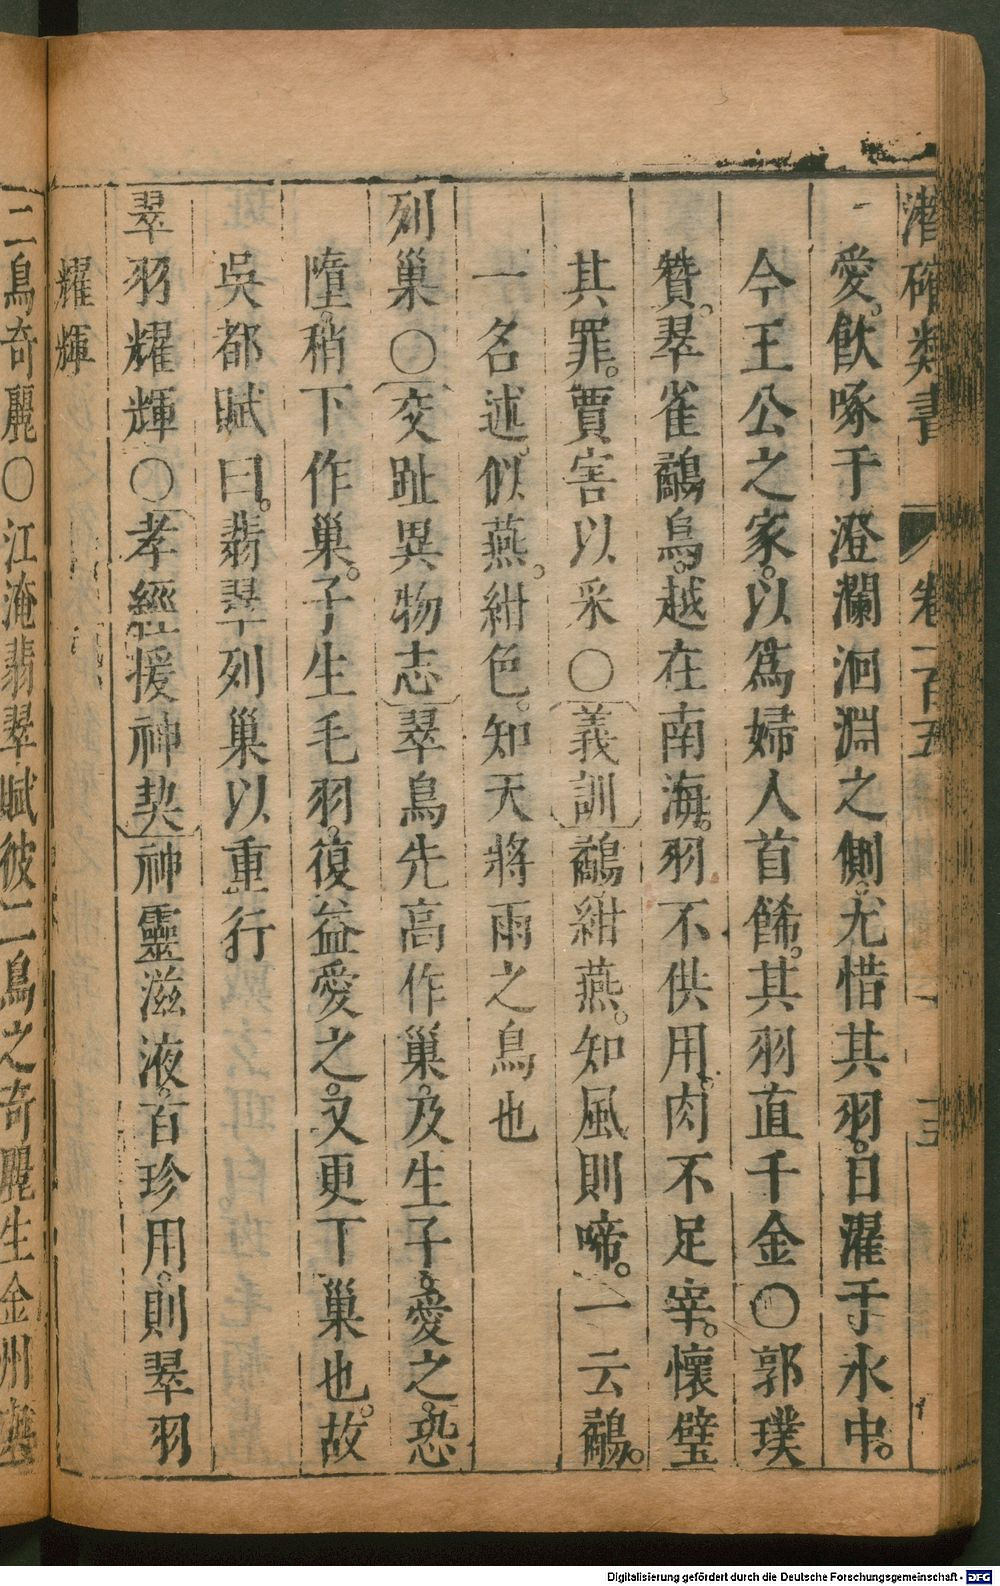 潛確類書 卷二百五 十三
愛。飲啄于澄瀾洄淵之側。尤惜其羽。日濯于水中。
今王公之家。以爲婦人首餙。其羽直千金〇郭璞
贊。翠雀鷸鳥。越在南海。羽不供用。肉不足宰。懷璧
其罪。賈害以采〇義訓鷸紺燕。知風則啼。一云鷸。
一名述。似燕。紺色。知天將雨之鳥也
列巢〇交趾異物志翠鳥先高作巢。及生子。愛之。恐
墮。稍下作巢。子生毛羽。復益愛之。又更下巢也。故
吳都賦曰。翡翠列巢以重行
翠羽耀輝〇孝經援神契神靈滋液。百珍用。則翠羽
耀輝
二鳥奇麗〇江淹翡翠賦彼二鳥之奇麗生金州
Digitalisierung gefördert durch die Deutsche Forschungsgemeinschaft - DFG